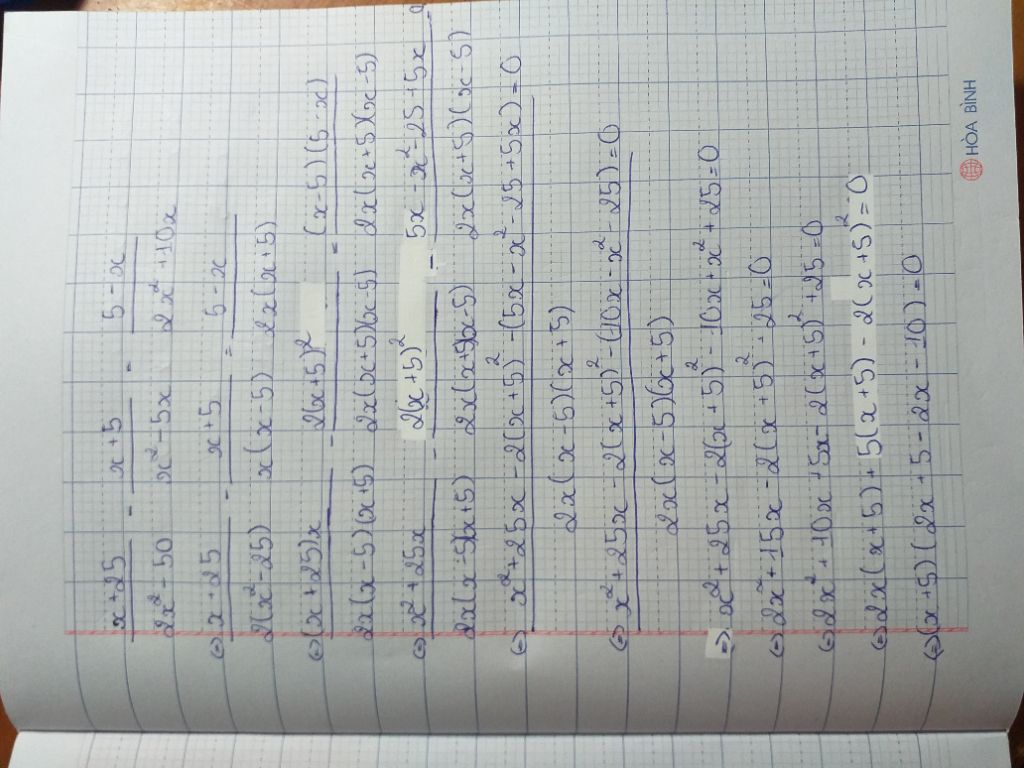 x+25 / 2x²-50 - x+5 / x²-5x = 5-x / 2x²+10x
(=) x+25 / 2(x²-25) - x+5 / x(x-5) = 5-x / 2x(x+5)
(=) (x+25)x / 2x(x-5)(x+5) - 2(x+5)² / 2x(x+5)(x-5) = (x-5)(5-x) / 2x(x+5)(x-5)
(=) x²+25x / 2x(x-5)(x+5) - 2(x+5)² / 2x(x+5)(x-5) - 5x-x²-25+5x / 2x(x+5)(x-5)
(=) x²+25x-2(x+5)²-(5x-x²-25+5x)=0 / 2x(x-5)(x+5)
(=) x²+25x-2(x+5)²-(10x-x²-25)=0 / 2x(x-5)(x+5)
(=) x²+25x-2(x+5)²-10x+x²+25=0
(=) 2x²+15x-2(x+5)²+25=0
(=) 2x²+10x+5x-2(x+5)²+25=0
(=) 2x(x+5)+5(x+5)-2(x+5)²=0
(=) (x+5)(2x+5-2x-10)=0
HÒA BÌNH